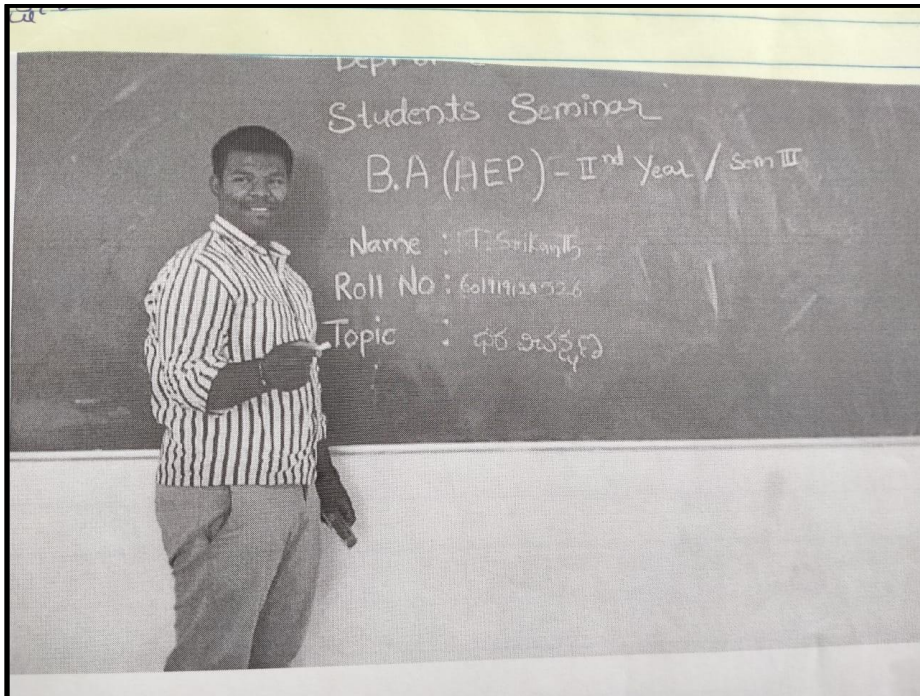 Students Seminar
B.A (HEP) - IInd Year / Sem III
Name : T. Srikanth
Roll No :
Topic : ధర విచక్షణ